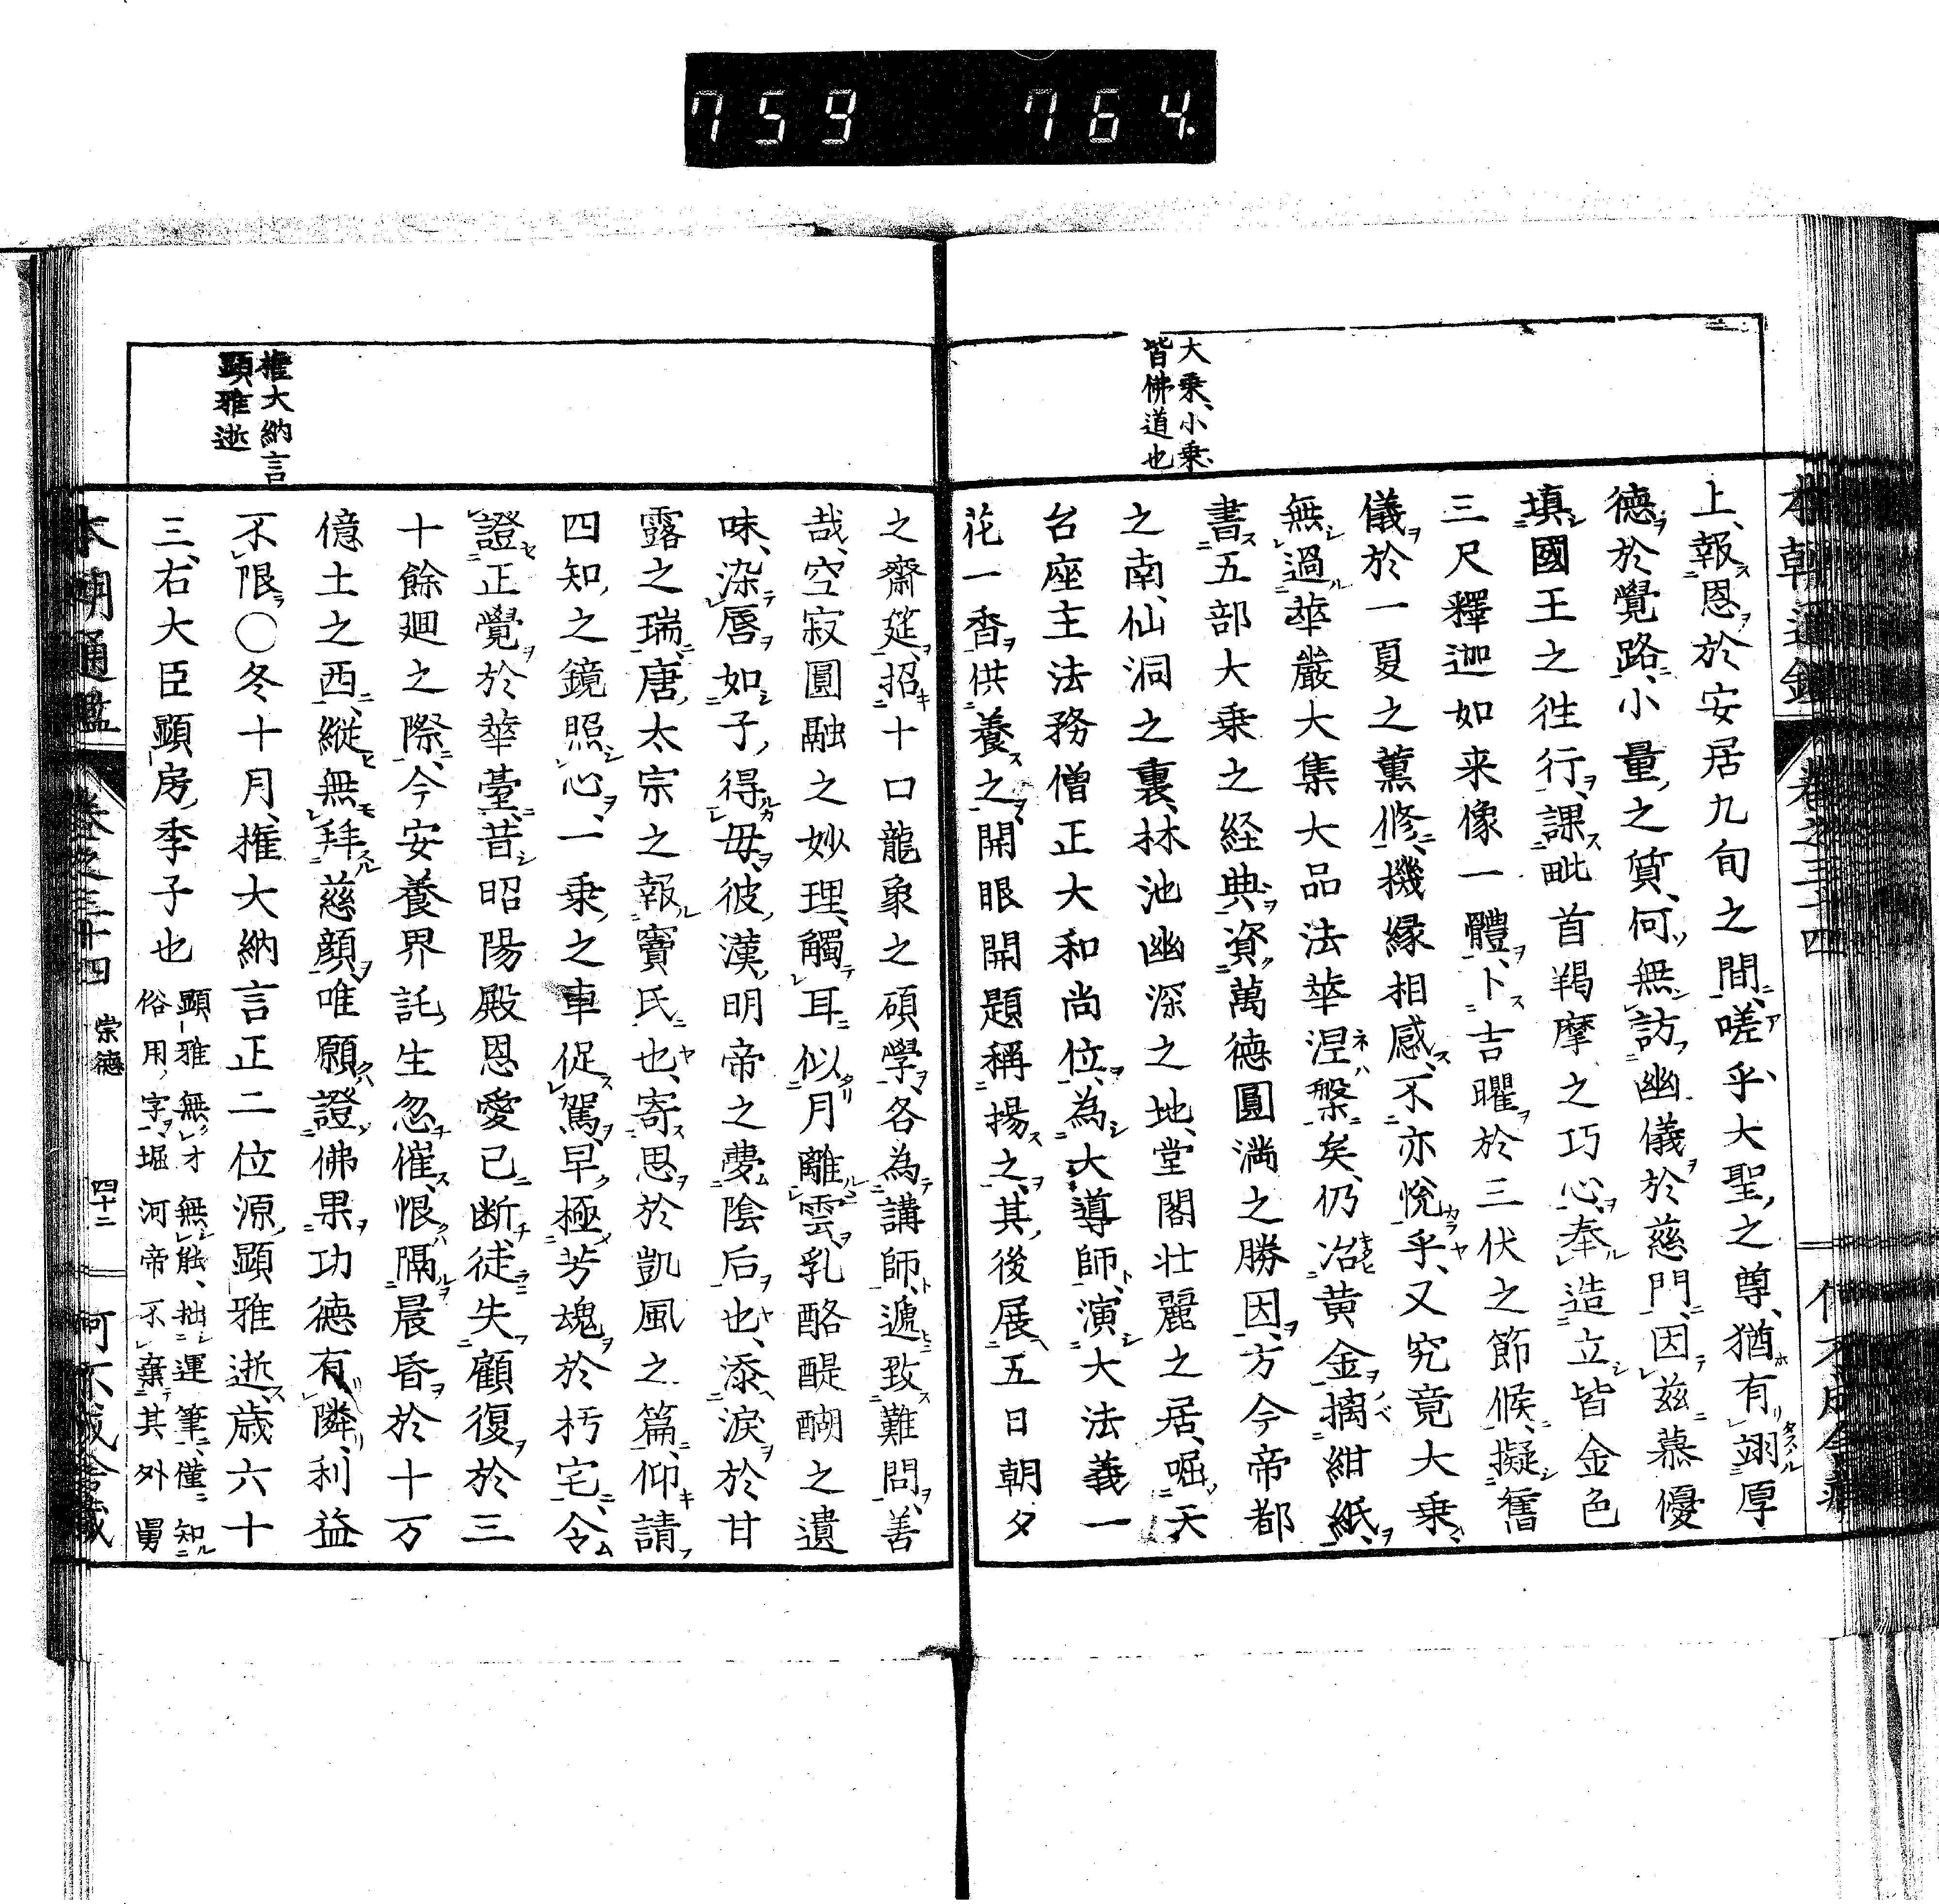 759 764.
本朝通鑑 卷之三十四
大乗小乗
皆佛道也
上、報恩於安居九旬之間、嗟乎大聖之尊、猶有翊厚
德於覺路、小量之質、何無訪幽儀於慈門、因茲慕優
填國王之徃行、課毗首羯摩之巧心、奉造立皆金色
三尺釋迦如来像一體、卜吉曜於三伏之節候、擬舊
儀於一夏之薫修、機縁相感、不亦悅乎、又究竟大乗
無過華嚴大集大品法華涅槃矣、仍冶黄金摛紺紙、
書五部大乗之経典、資萬德圓満之勝因、方今帝都
之南、仙洞之裏、林池幽深之地、堂閣壮麗之居、啒天
台座主法務僧正大和尚位、為大導師、演大法義一
花一香供養之、開眼開題稱揚之、其後展五日朝夕
之齋筵、招十口龍象之碩學、各為講師、遞致難問、善
哉、空寂圓融之妙理、觸耳似月離雲、乳酪醍醐之遺
味、染唇如子得母、彼漢明帝之夢陰后也、添涙於甘
露之瑞、唐太宗之報竇氏也、寄思於凱風之篇、仰請
四知之鏡照心、一乗之車促駕、早極芳魂於朽宅、令
證正覺於華臺、昔昭陽殿恩愛已断、徒失顧復於三
十餘廻之際、今安養界託生忽催、恨隔晨昏於十万
億土之西、縱無拜慈顔、唯願證佛果、功德有隣、利益
不限〇冬十月、權大納言正二位源顯雅逝、歳六十
三、右大臣顯房季子也
顯雅無才無能、拙運筆、僅知
俗用字、堀河帝不棄其外舅
權大納言
顯雅逝
本朝通鑑 卷之三十四 崇德 四十二